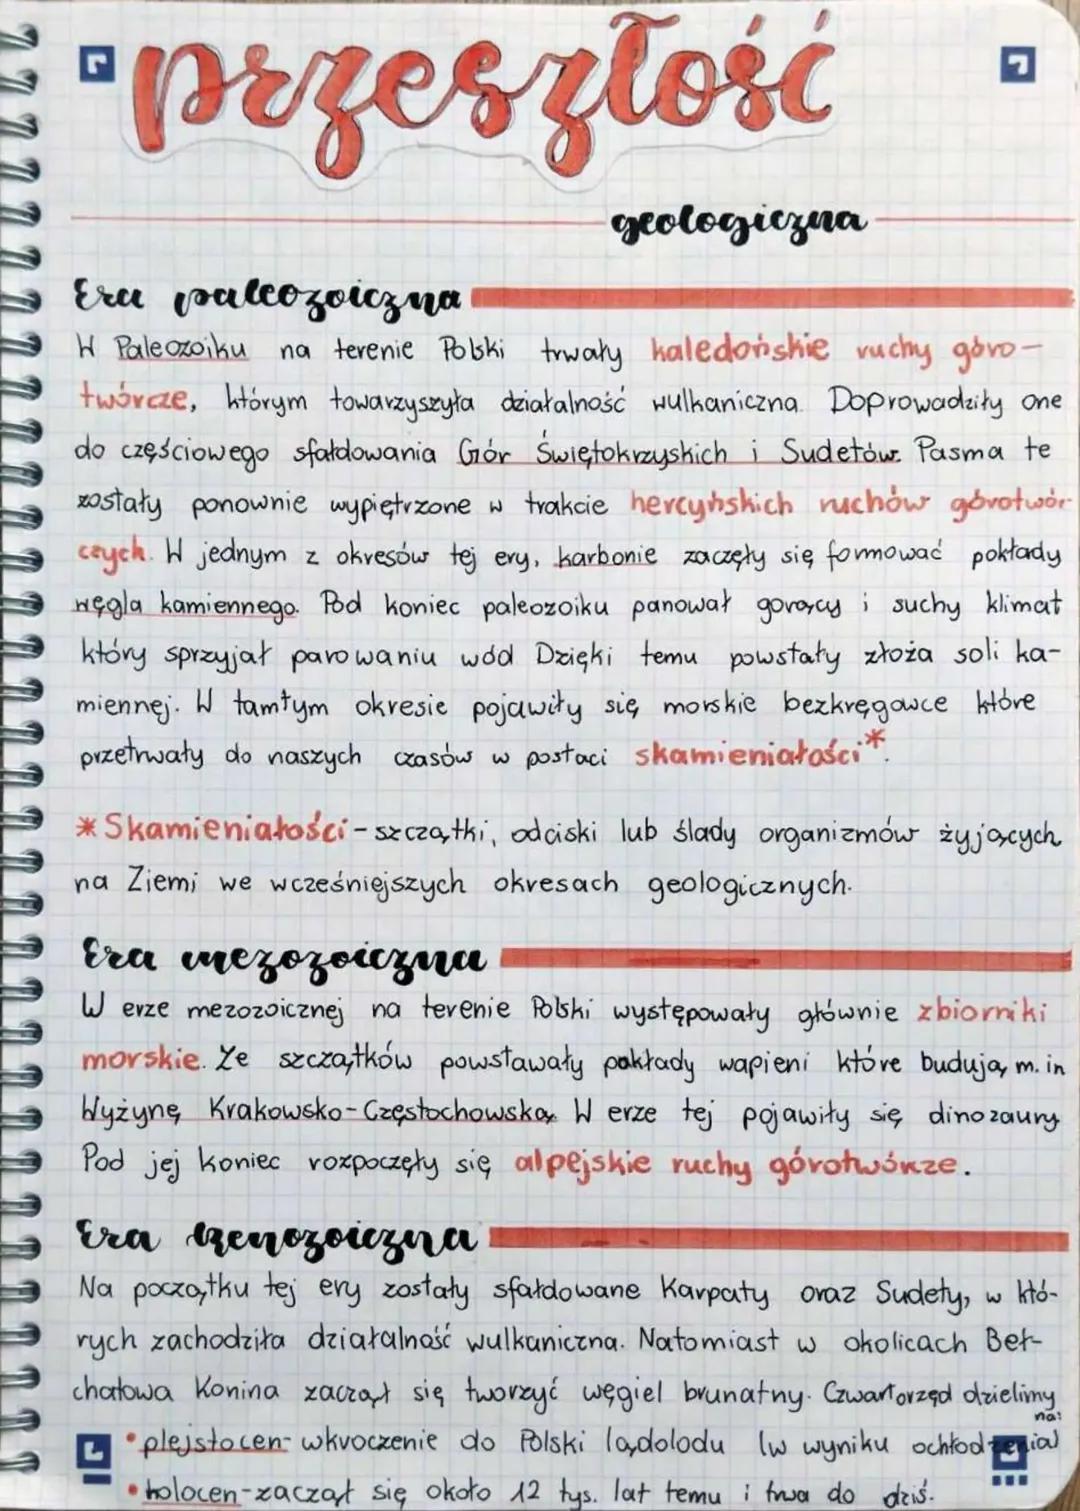 przeszłość
geologiczna
Era paleozoiczna
W Paleozoiku na terenie Polski trwały kaledońskie ruchy góro-
twórcze, którym towarzyszyła działalność wulkaniczna. Doprowadziły one
do częściowego sfałdowania Gór Świętokrzyskich i Sudetów. Pasma te
zostały ponownie wypiętrzone w trakcie hercyńskich ruchów górotwór-
czych. W jednym z okresów tej ery, karbonie zaczęły się formować pokłady
węgla kamiennego. Pod koniec paleozoiku panował gorący i suchy klimat
który sprzyjał parowaniu wód Dzięki temu powstały złoża soli ka-
miennej. W tamtym okresie pojawiły się morskie bezkręgowce które
przetrwały do naszych czasów w postaci skamieniałości*.
*Skamieniałości - szczątki, odciski lub ślady organizmów żyjących
na Ziemi we wcześniejszych okresach geologicznych.
Era mezozoiczna
W erze mezozoicznej na terenie Polski występowały głównie zbiorniki
morskie. Ze szczątków powstawały pokłady wapieni które budują m.in
Wyżynę Krakowsko-Częstochowską. W erze tej pojawiły się dinozaury
Pod jej koniec rozpoczęły się alpejskie ruchy górotwórcze.
Era kenozoiczna
Na początku tej ery zostały sfałdowane Karpaty oraz Sudety, w któ-
rych zachodziła działalność wulkaniczna. Natomiast w okolicach Beł-
chatowa Konina zaczął się tworzyć węgiel brunatny. Czwartorzęd dzielimy
na:
• plejstocen - wkroczenie do Polski lądolodu (w wyniku ochłodzenia)
• holocen - zaczął się około 12 tys. lat temu i trwa do dziś.